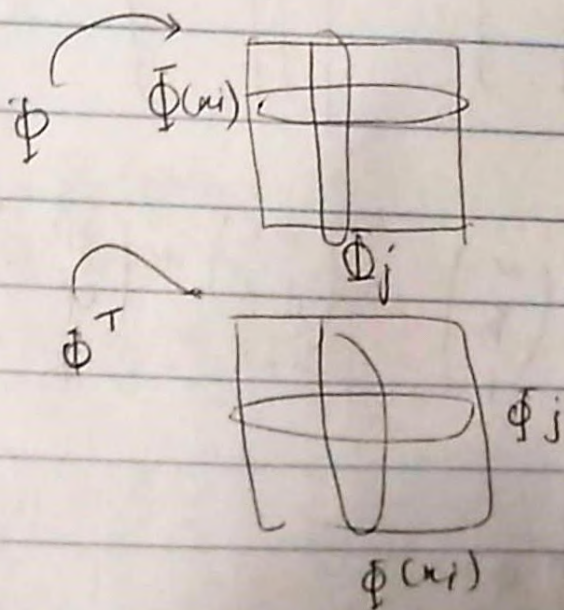 Φ
Φ(xi)
Φj
Φ^T
Φj
Φ(xi)